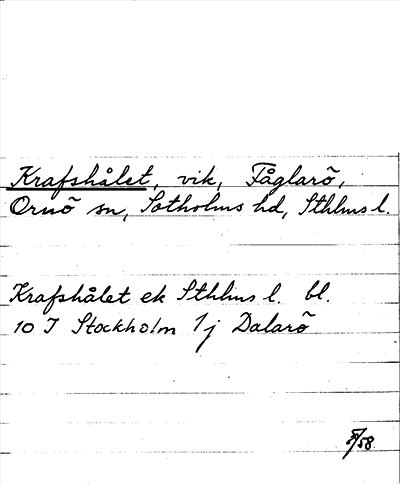 Krafshålet, vik, Fåglarö,
Ornö sn, Sotholms hd, Sthlms l.
Krafshålet ek Sthlms l. bl.
10 J Stockholm 1j Dalarö
/58